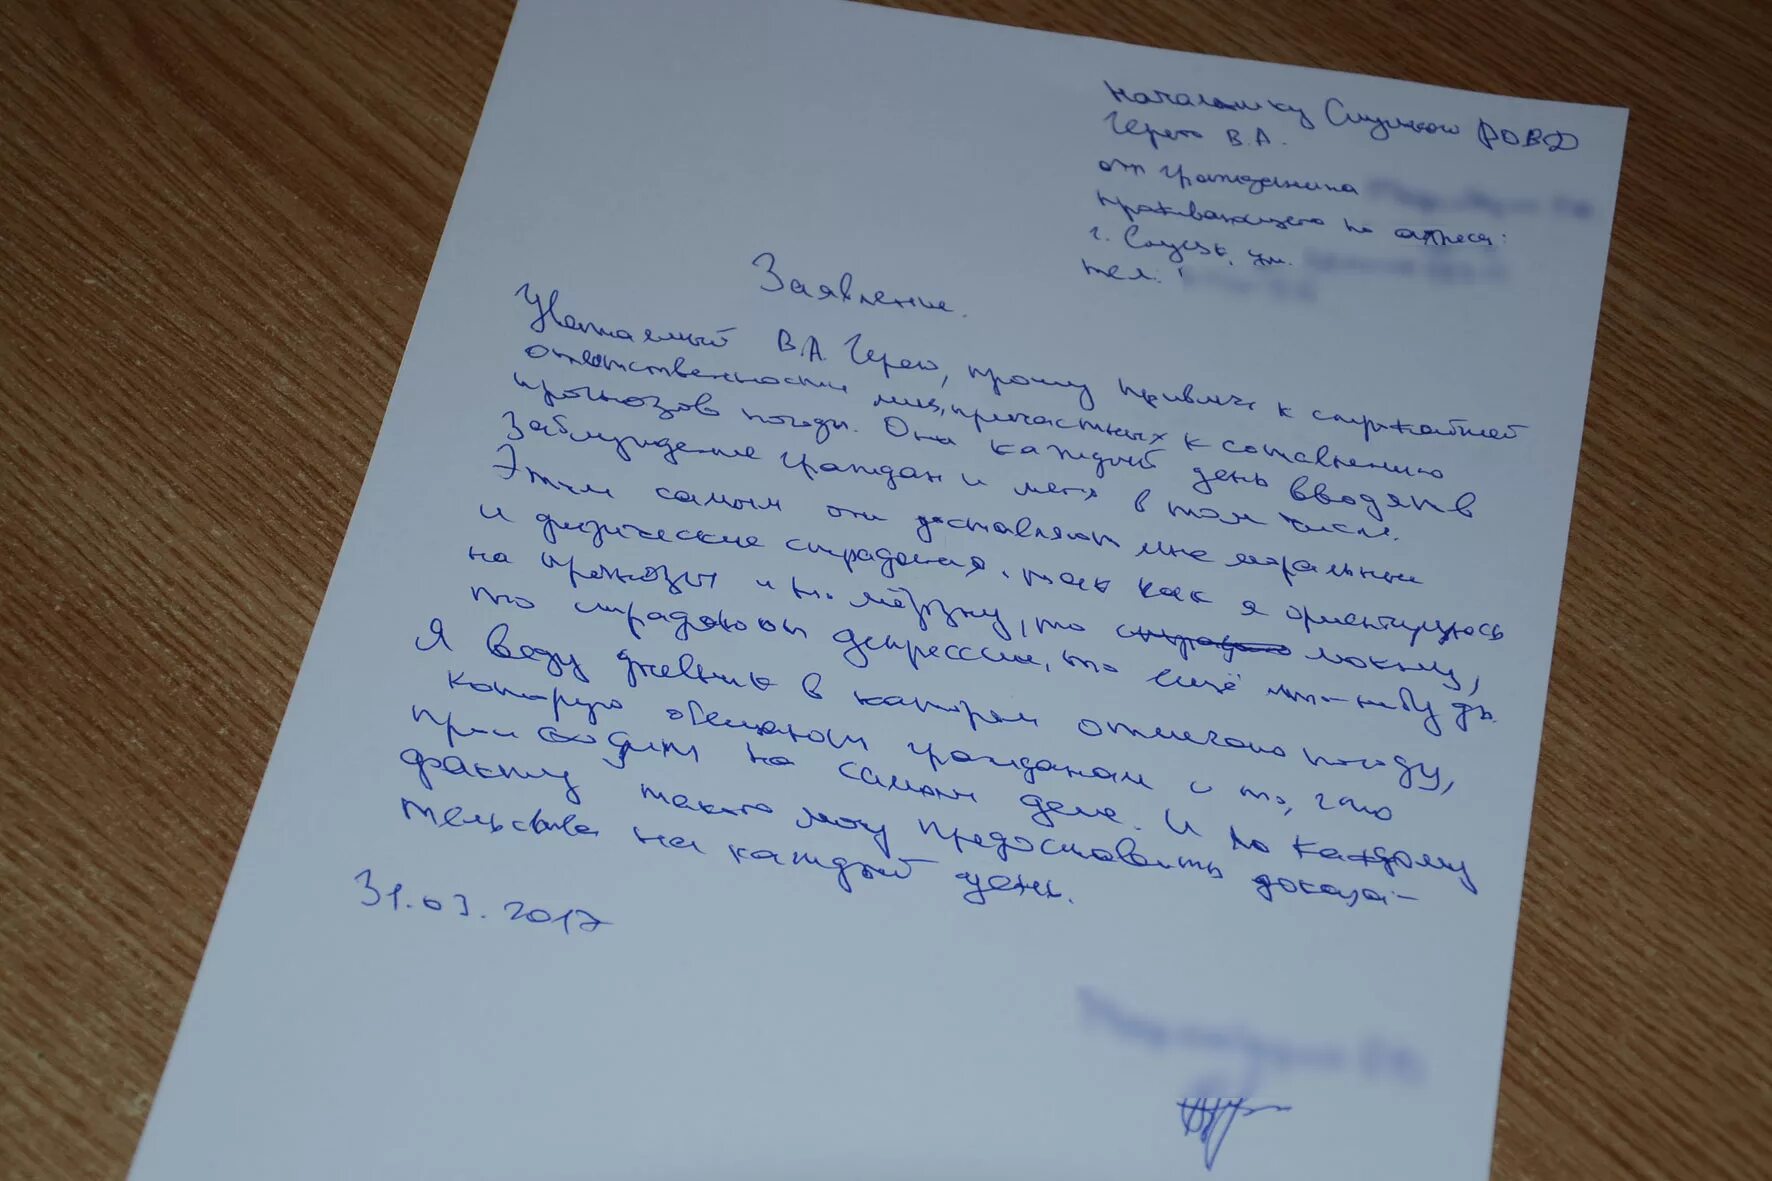 Начальнику Слуцкого РОВД
Герето В.А.
от гражданина
проживающего по адресу:
г. Слуцк, ул.
тел.
Заявление.
Уважаемый В.А. Герето, прошу привлечь к строжайшей
ответственности лиц, причастных к составлению
прогнозов погоды. Они каждый день вводят в
заблуждение граждан и меня в том числе.
Этим самым они доставляют мне моральные
и физические страдания, так как я ориентируюсь
на прогнозы и то мёрзну, то мокну,
то страдаю от депрессии, то ещё что-нибудь.
Я веду дневник в котором отмечаю погоду,
которую обещают гражданам и то, что
происходит на самом деле. И по каждому
факту такого могу предоставить доказа-
тельства на каждый день.
31.03.2017